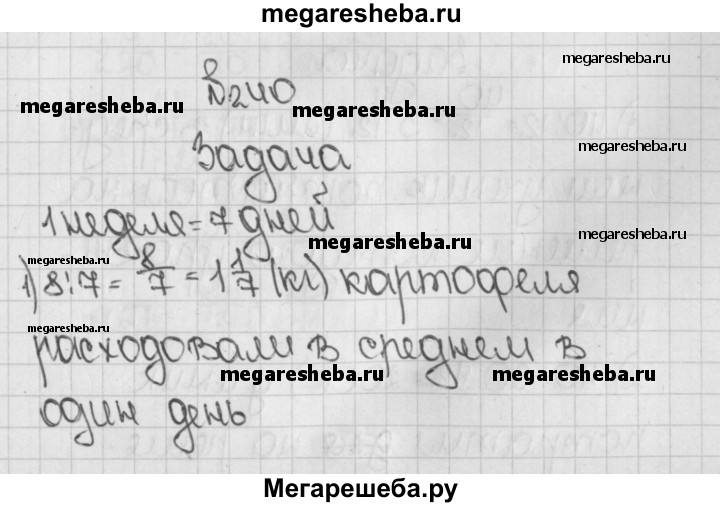 megaresheba.ru
megaresheba.ru
№240
megaresheba.ru
megaresheba.ru
Задача
megaresheba.ru
1 неделя = 7 дней
megaresheba.ru
megaresheba.ru
megaresheba.ru
1) 8:7 = 8/7 = 1 1/7 (кг) картофеля
megaresheba.ru
расходовали в среднем в
megaresheba.ru
megaresheba.ru
один день
Мегарешеба.ру